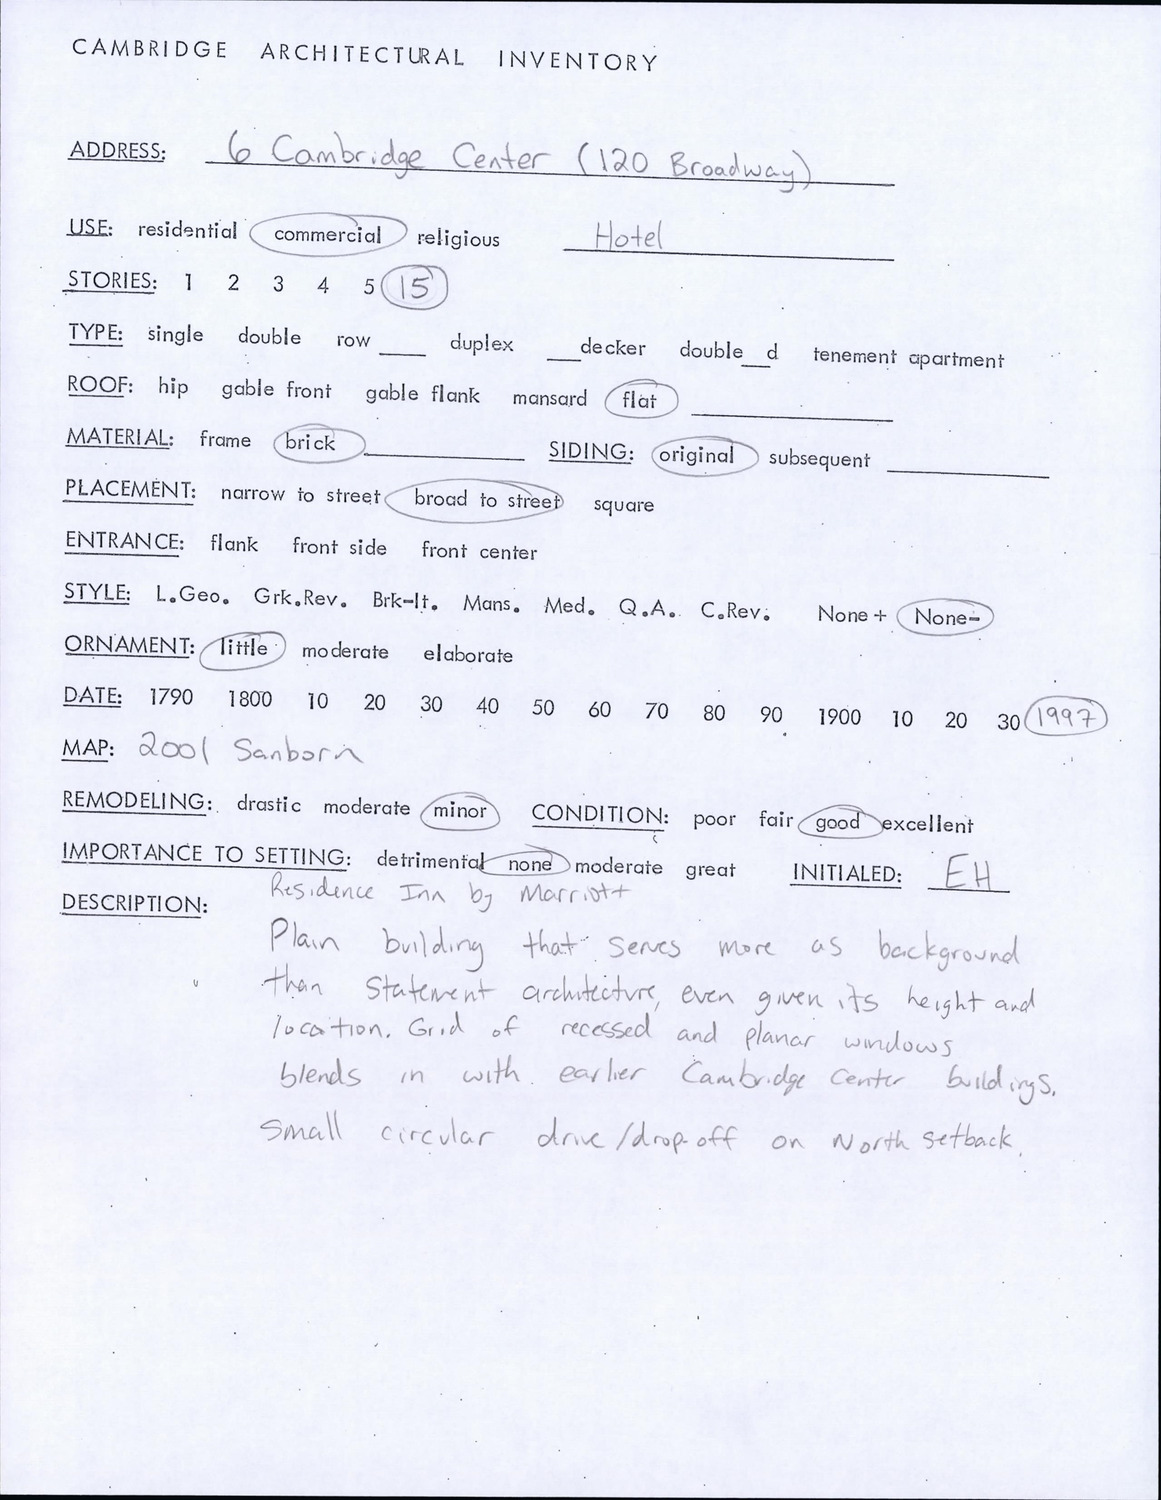 CAMBRIDGE ARCHITECTURAL INVENTORY
ADDRESS: 6 Cambridge Center (120 Broadway)
USE: residential commercial religious Hotel
STORIES: 1 2 3 4 5 15
TYPE: single double row ____ duplex ___decker double___d tenement apartment
ROOF: hip gable front gable flank mansard flat ____
MATERIAL: frame brick ____ SIDING: original subsequent ____
PLACEMENT: narrow to street broad to street square
ENTRANCE: flank front side front center
STYLE: L.Geo. Grk.Rev. Brk-It. Mans. Med. Q.A. C.Rev. None+ None-
ORNAMENT: little moderate elaborate
DATE: 1790 1800 10 20 30 40 50 60 70 80 90 1900 10 20 30 1997
MAP: 2001 Sanborn
REMODELING: drastic moderate minor CONDITION: poor fair good excellent
IMPORTANCE TO SETTING: detrimental none moderate great INITIALED: EH
DESCRIPTION: Residence Inn by Marriott
Plain building that serves more as background
than statement architecture, even given its height and
location. Grid of recessed and planar windows
blends in with earlier Cambridge Center buildings.
Small circular drive/drop-off on North setback.